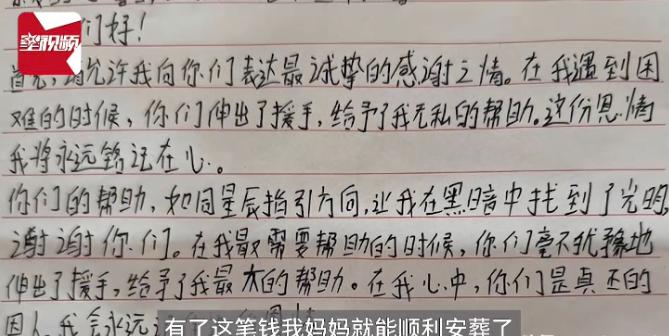 星视频
们好！
首先，请允许我向你们表达最诚挚的感谢之情。在我遇到困
难的时候，你们伸出了援手，给予了我无私的帮助。这份恩情
我将永远铭记在心。
你们的帮助，如同星辰指引方向，让我在黑暗中找到了光明，
谢谢你们。在我最需要帮助的时候，你们毫不犹豫地
伸出了援手，给予了我最大的帮助。在我心中，你们是真正的
我会永远
有了这笔钱我妈妈就能顺利安葬了